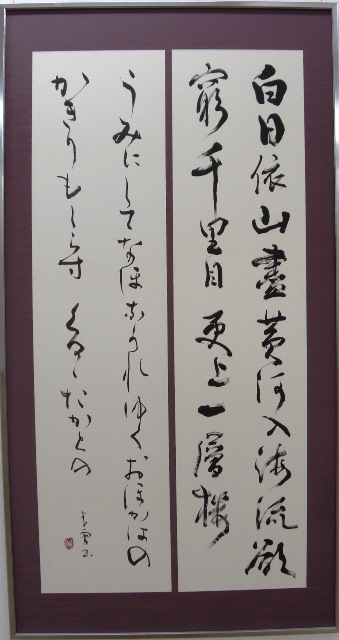 白日依山盡黄河入海流欲
窮千里目更上一層樓
うみにしてなほなかれゆくおほかはの
かきりもしらす くるゝたかとの